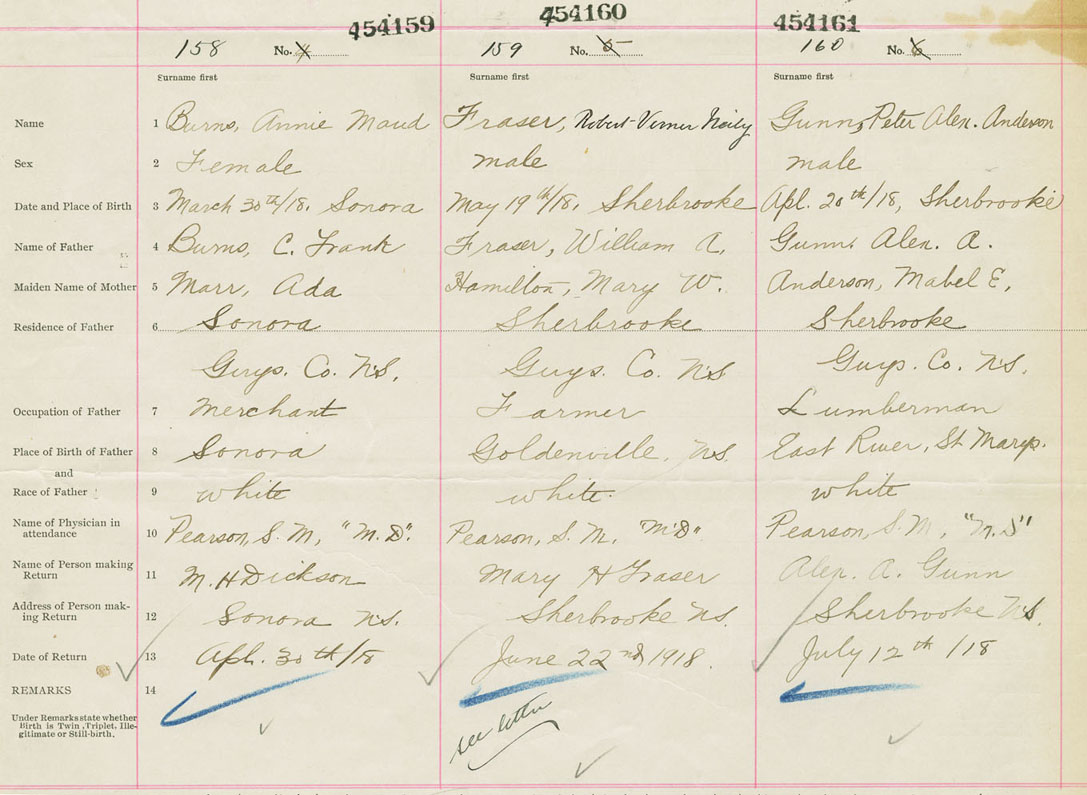 454159 454160 454161
158 No. 4 159 No. 5 160 No. 6
Surname first Surname first Surname first
Name 1 Burns, Annie Maud Fraser, Robert Verner Neily Gunn, Peter Alex. Anderson
Sex 2 Female male male
Date and Place of Birth 3 March 30th/18. Sonora May 19th/18. Sherbrooke Apl. 20th/18, Sherbrooke
Name of Father 4 Burns, C. Frank Fraser, William A. Gunn, Alex. A.
Maiden Name of Mother 5 Marr, Ada Hamilton, Mary W. Anderson, Mabel E.
Residence of Father 6 Sonora Sherbrooke Sherbrooke
Guys. Co. N.S. Guys. Co. N.S Guys. Co. N.S.
Occupation of Father 7 Merchant Farmer Lumberman
Place of Birth of Father 8 Sonora Goldenville, N.S. East River, St Marys.
and
Race of Father 9 white white. white
Name of Physician in
attendance 10 Pearson, S. M., "M.D". Pearson, S. M. "M.D" Pearson, S. M,
Name of Person making
Return 11 M. H Dickson Mary H Fraser Alex. A. Gunn
Address of Person mak-
ing Return 12 Sonora N.S. Sherbrooke N.S. Sherbrooke N.S.
Date of Return 13 Apl. 30th/18 June 22nd, 1918. July 12th /18
REMARKS 14
see letter
Under Remarks state whether
Birth is Twin, Triplet, Ille-
gitimate or Still-birth.